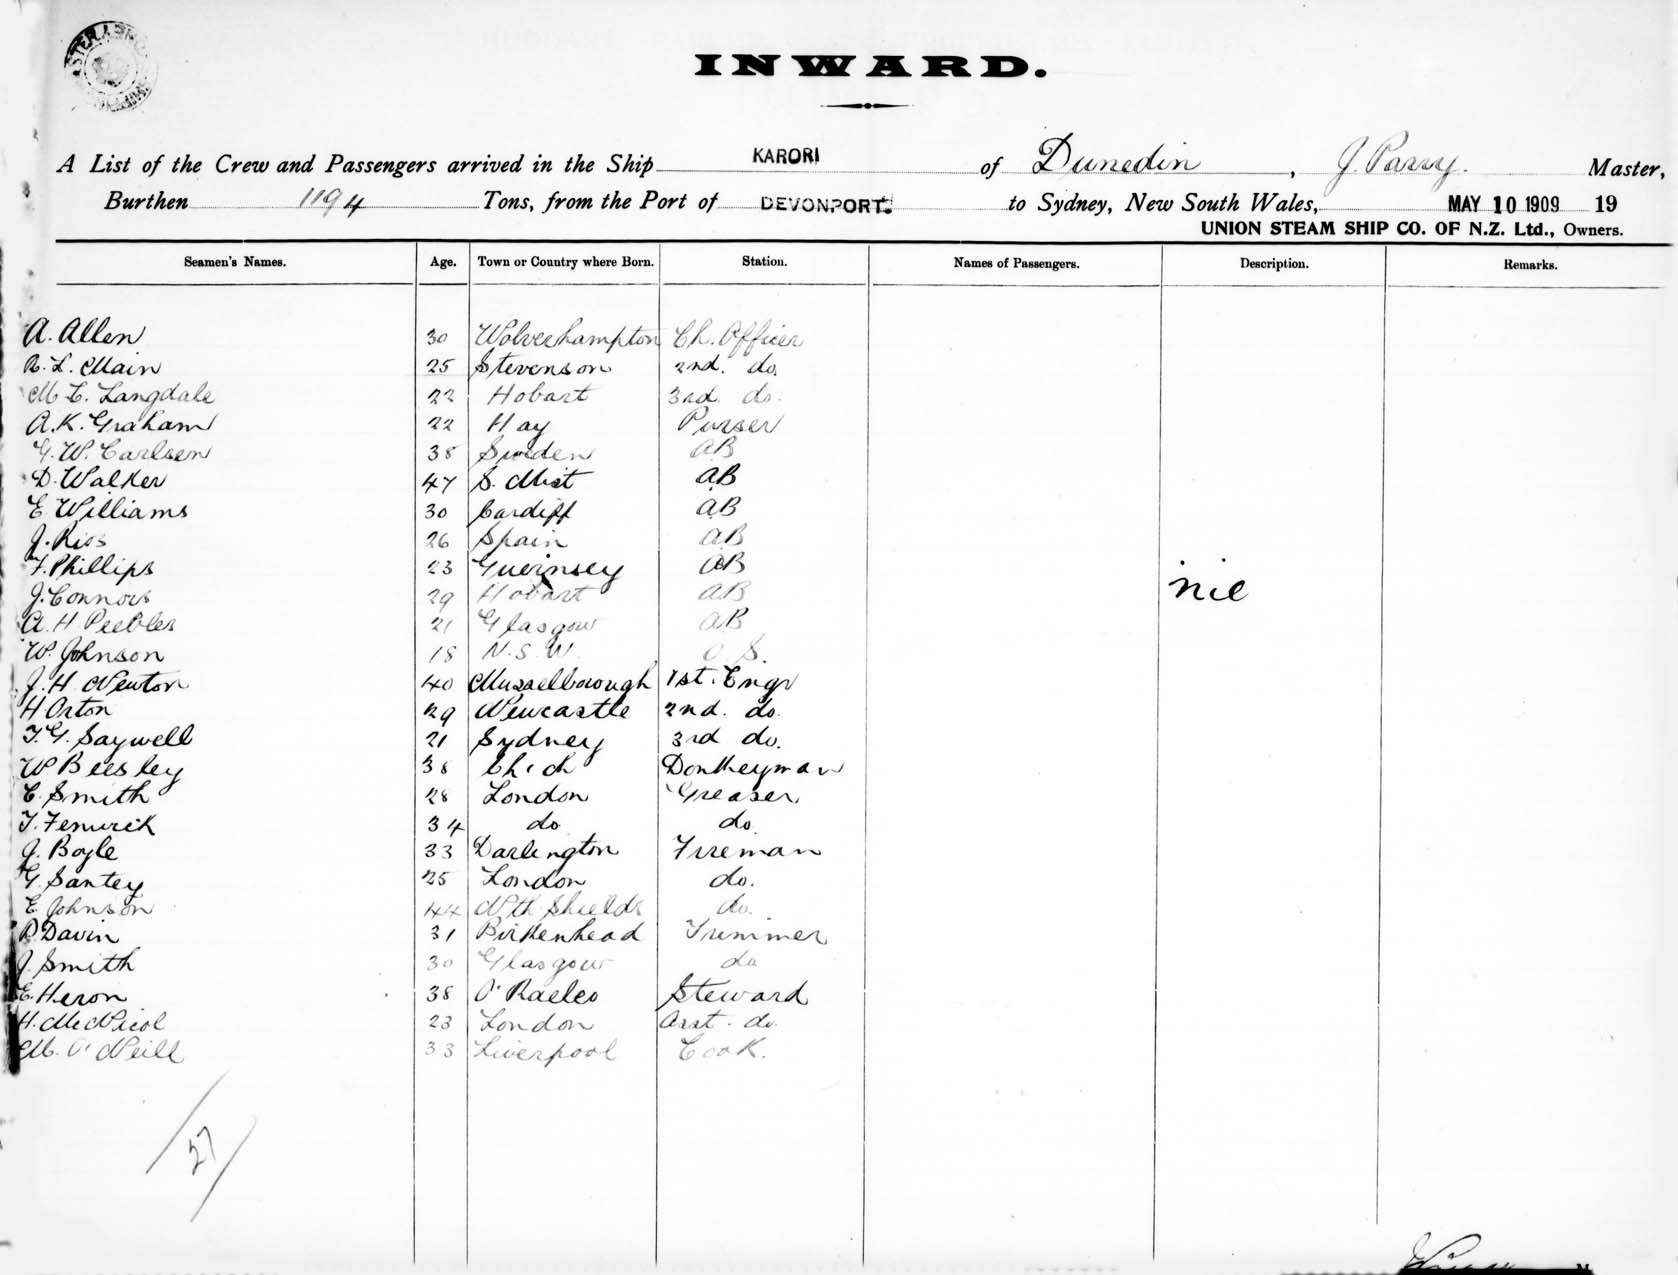 INWARD.
A List of the Crew and Passengers arrived in the Ship KARORI of Dunedin, J. Parry. Master,
Burthen 1194 Tons, from the Port of DEVONPORT. to Sydney, New South Wales, MAY 10 1909 19
UNION STEAM SHIP CO. OF N.Z. Ltd., Owners.
Seamen's Names. Age. Town or Country where Born. Station. Names of Passengers. Description. Remarks.
A. Allen 30 Wolverhampton Ch. Officer
R. L. Main 25 Stevenson 2nd. do.
M. L. Langdale 22 Hobart 3rd. do.
A. K. Graham 22 Hay Purser
G. W. Carlsen 38 Sweden AB
D. Walker 47 S. Mist AB
E. Williams 30 Cardiff AB
J. Rios 26 Spain AB
F. Phillips 23 Guernsey AB
nil
J. Connors 29 Hobart AB
A. H Peebles 21 Glasgow AB
W. Johnson 18 N.S.W. O.S.
J. H. Newton 40 Musselborough 1st. Engr
H Orton 29 Newcastle 2nd. do.
T. G. Saywell 21 Sydney 3rd do.
W Beesley 38 Donkeyman
C. Smith 28 London Greaser
T. Fenwick 34 do do
J. Boyle 33 Darlington Fireman
G. Santey 25 London do.
E Johnson 44 Nth Shields do.
R Davin 31 Birkenhead Trimmer
J. Smith 30 Glasgow do
E. Heron 38 Steward
H. McNicol 23 London Asst. do.
M. O'Neill 33 Liverpool Cook.
27